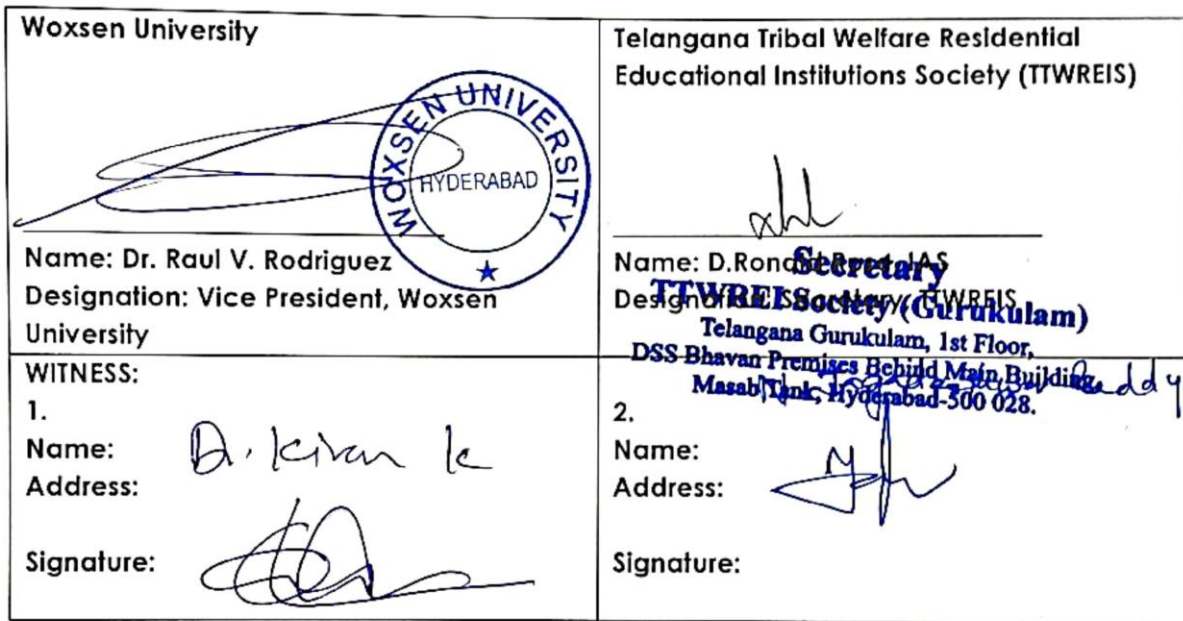 Woxsen University
WOXSEN UNIVERSITY
HYDERABAD
Name: Dr. Raul V. Rodriguez
Designation: Vice President, Woxsen
University
Telangana Tribal Welfare Residential
Educational Institutions Society (TTWREIS)
Name: D.Ronald IAS
Designation: Secretary, TTWREIS
Secretary
TTWREI Society (Gurukulam)
Telangana Gurukulam, 1st Floor,
DSS Bhavan Premises Behind Main Building,
Masab Tank, Hyderabad-500 028.
WITNESS:
1.
Name: Dr. Kiran K
Address:
Signature:
Reddy
2.
Name:
Address:
Signature: